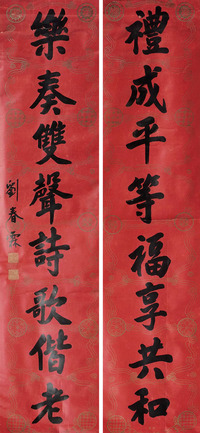 禮成平等福享共和
樂奏雙聲詩歌偕老
劉春霖